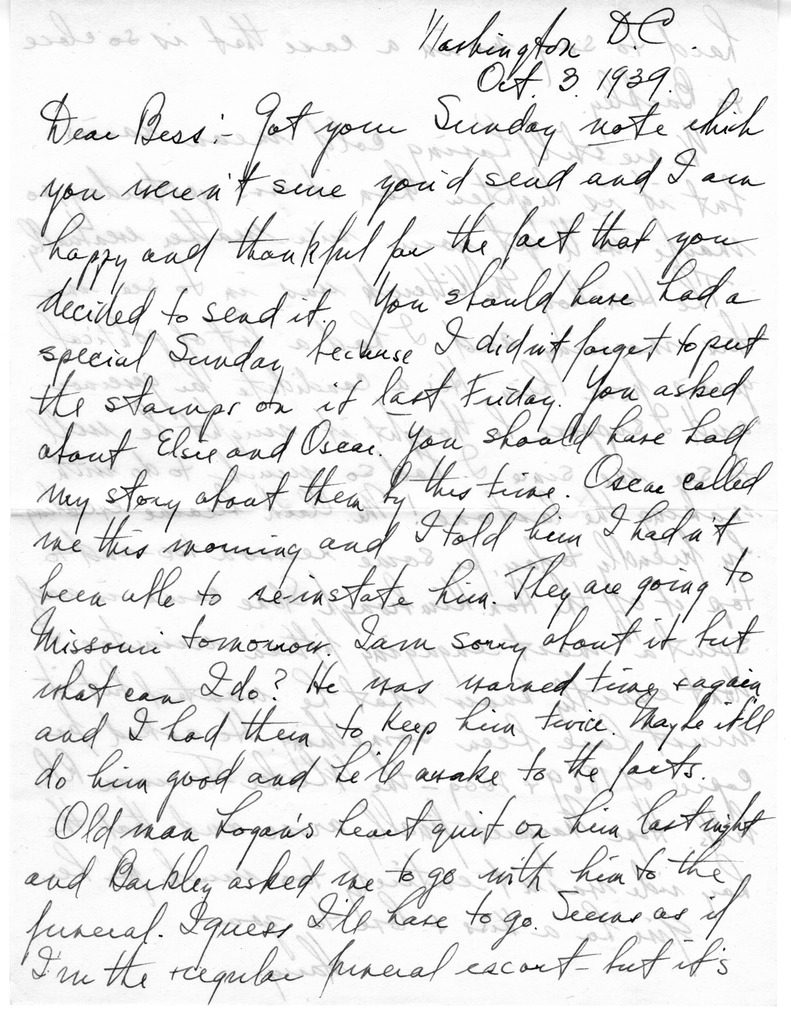 Washington D.C.
Oct. 3. 1939.
Dear Bess:- Got your Sunday note which
you weren't sure you'd send and I am
happy and thankful for the fact that you
decided to send it. You should have had a
special Sunday because I didn't forget to put
the stamps on it last Friday. You asked
about Elsie and Oscar. You should have had
my story about them by this time. Oscar called
me this morning and I told him I hadn't
been able to re-instate him. They are going to
Missouri tomorrow. I am sorry about it but
what can I do? He was warned time & again
and I had them to keep him twice. Maybe it'll
do him good and he'll awake to the facts.
Old man Logan's heart quit on him last night
and Barkley asked me to go with him to the
funeral. I guess I'll have to go. Seems as if
I'm the regular funeral escort - but it's